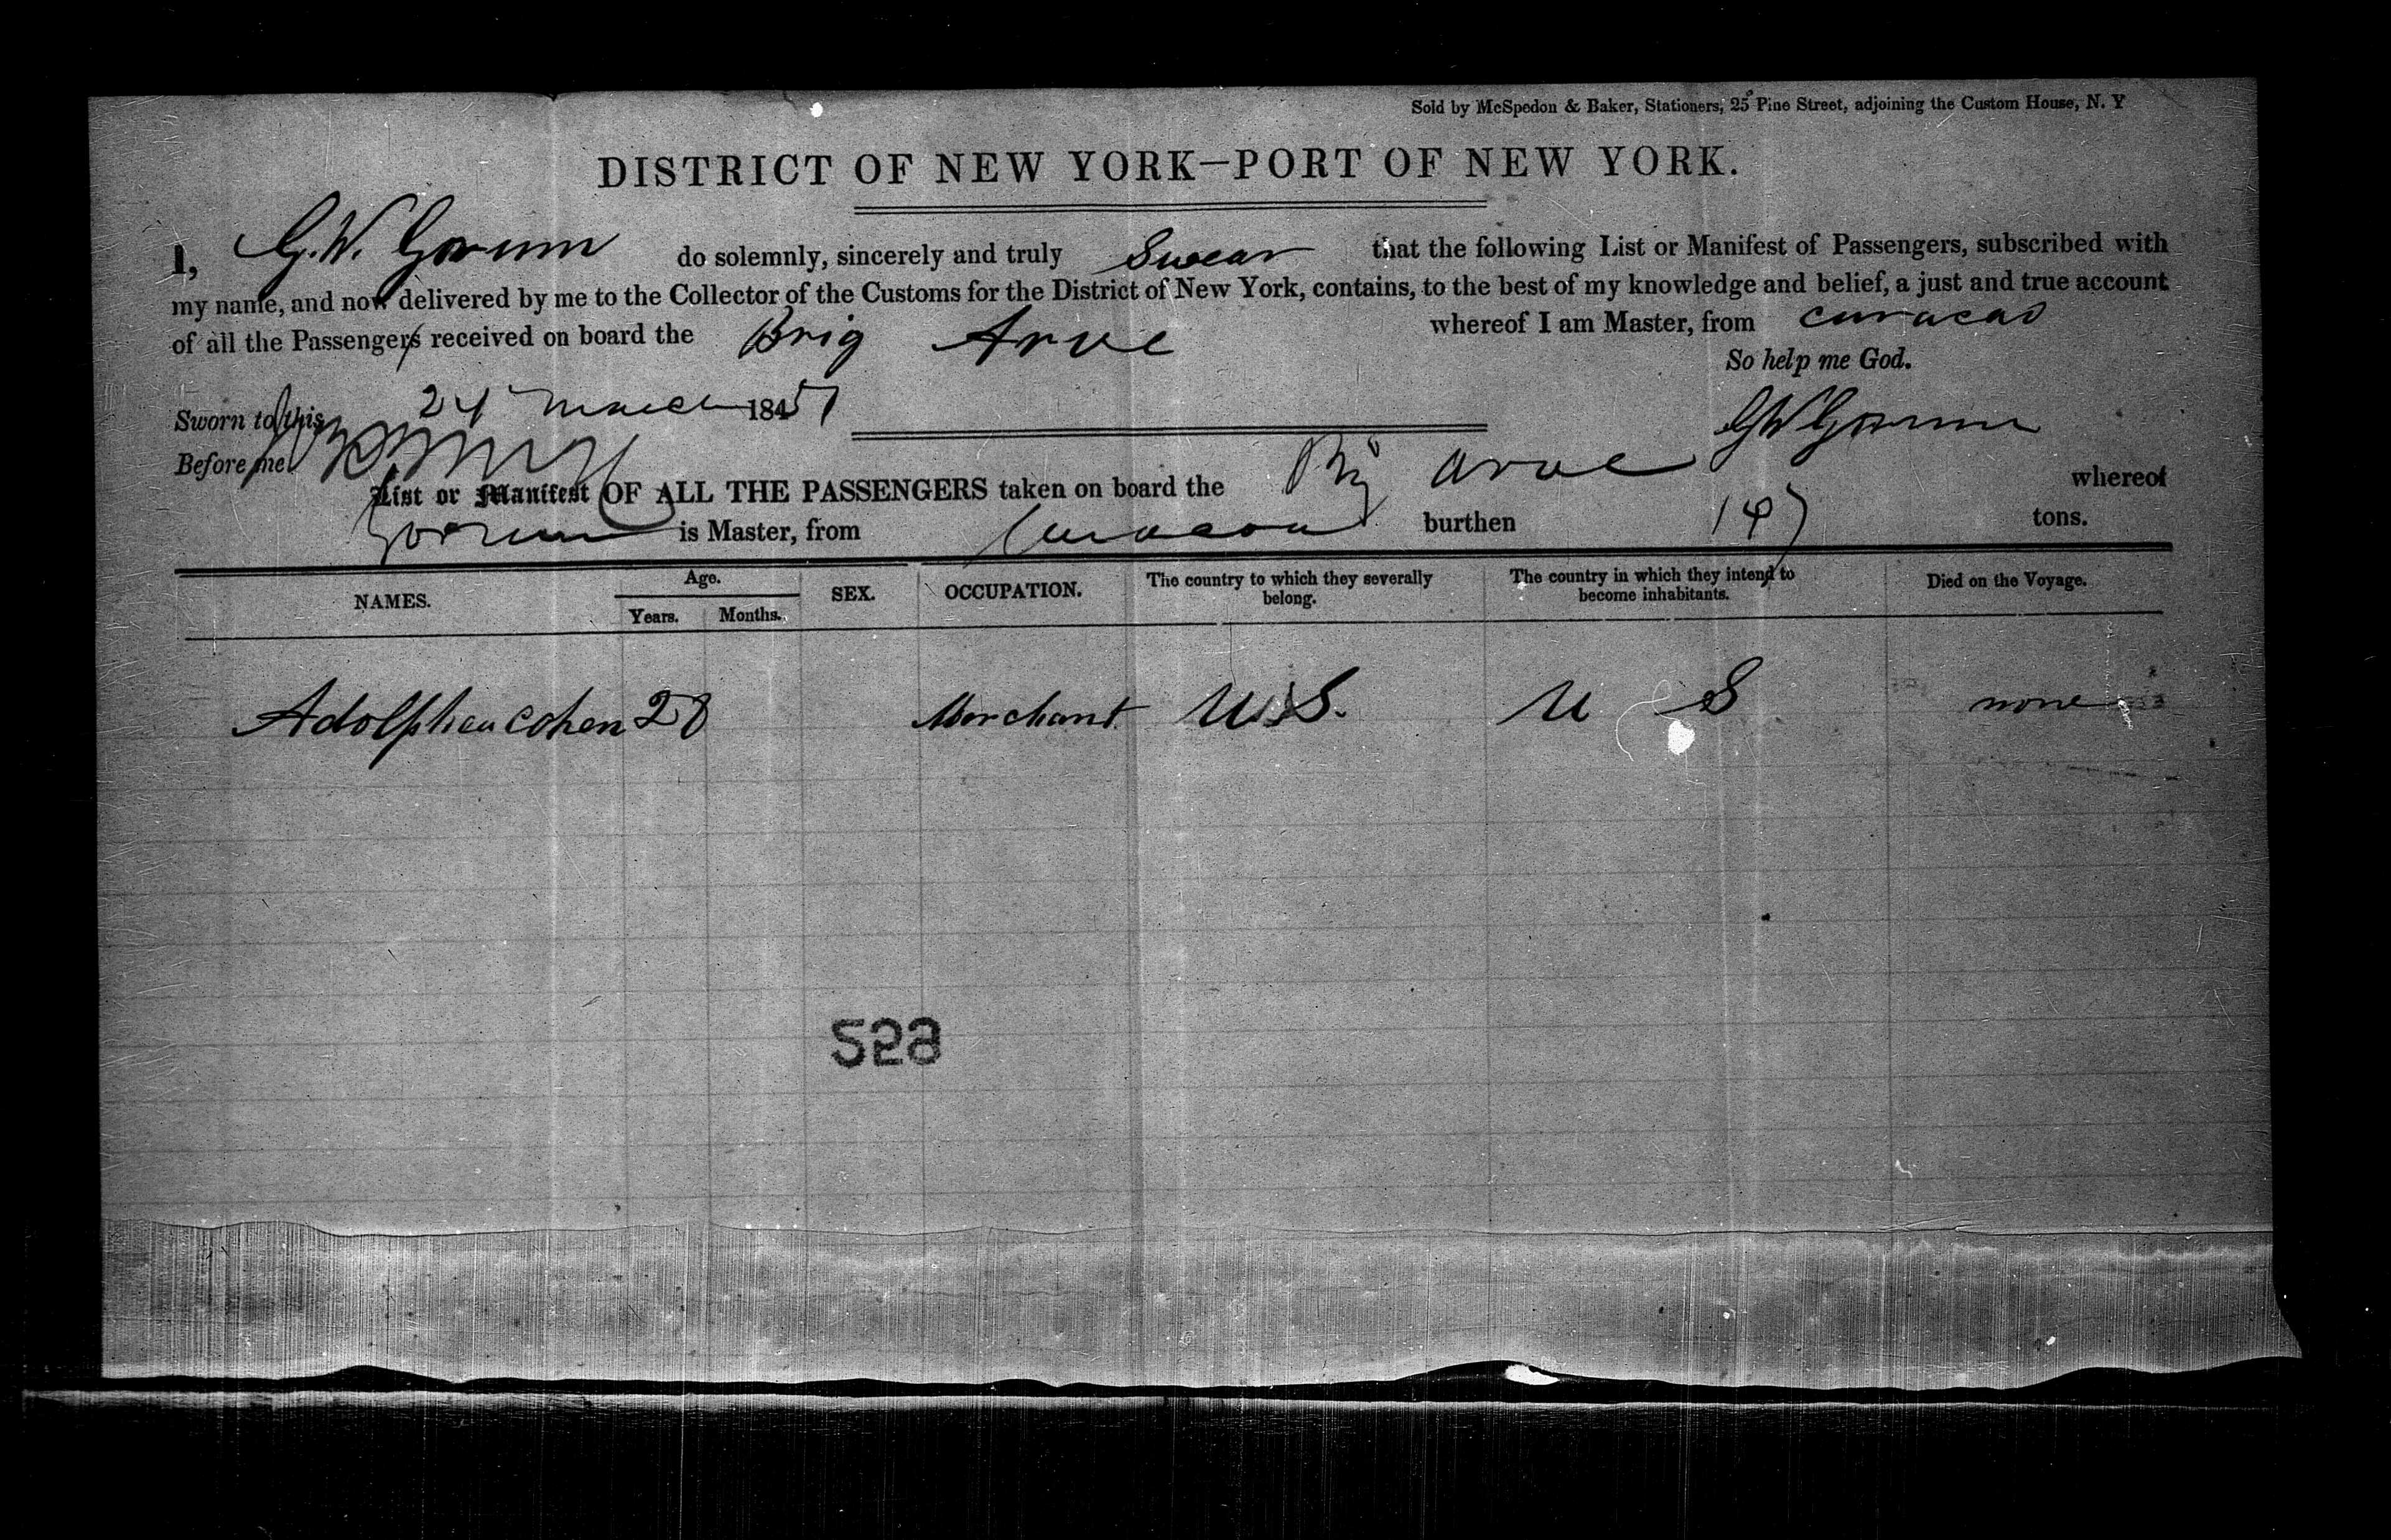 Sold by McSpedon & Baker, Stationers, 25 Pine Street, adjoining the Custom House, N. Y
DISTRICT OF NEW YORK—PORT OF NEW YORK.
I, G.W. Gorum do solemnly, sincerely and truly swear that the following List or Manifest of Passengers, subscribed with
my name, and now delivered by me to the Collector of the Customs for the District of New York, contains, to the best of my knowledge and belief, a just and true account
of all the Passengers received on board the Brig Arve whereof I am Master, from curacao
So help me God.
Sworn to this 24 March 1851
GW Gorum
Before me
List or Manifest OF ALL THE PASSENGERS taken on board the Brig Arve whereof
Gorum is Master, from Curacoa burthen 147 tons.
NAMES. Age. Years. Months. SEX. OCCUPATION. The country to which they severally belong. The country in which they intend to become inhabitants. Died on the Voyage.
Cohen 28 Merchant U.S. U S none